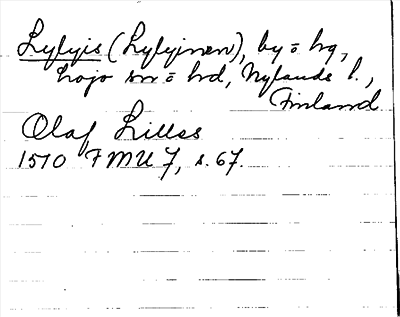 Lylyis (Lylyinen), by o hg,
Lojo sn o hd, Nylands l.,
Finland
Olaf Lilles
1510 FMU 7, s. 67.